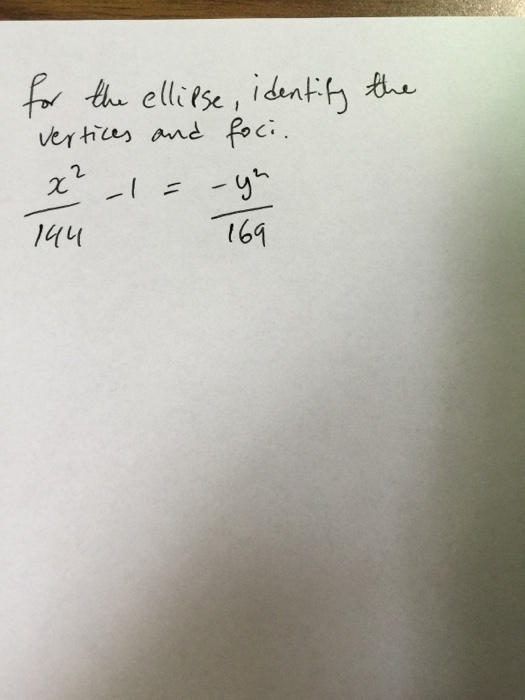 for the ellipse, identify the
vertices and foci.
x²/144 - 1 = -y²/169